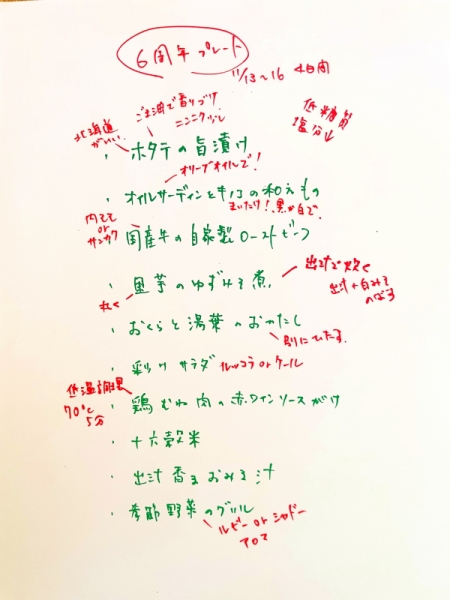 6周年プレート
11/13〜16 4日間
低糖質
塩分↓
ごま油で香りづけ
ニンニクなし
北海道
がいい
・ホタテの旨漬け
オリーブオイルで!
・オイルサーディンとキノコの和えもの
まいたけ!黒か白で
内もも
or
サンカク
国産牛の自家製ローストビーフ
・里芋のゆずみそ煮
丸く
出汁で炊く
出汁+白みそ
のばす
・おくらと湯葉のおひたし
別にひたす
・彩りサラダ ルッコラ or ケール
低温調理
70℃
5分
・鶏むね肉の赤ワインソースがけ
・十六穀米
・出汁香るおみそ汁
・季節野菜のグリル
ルビー or シャドー